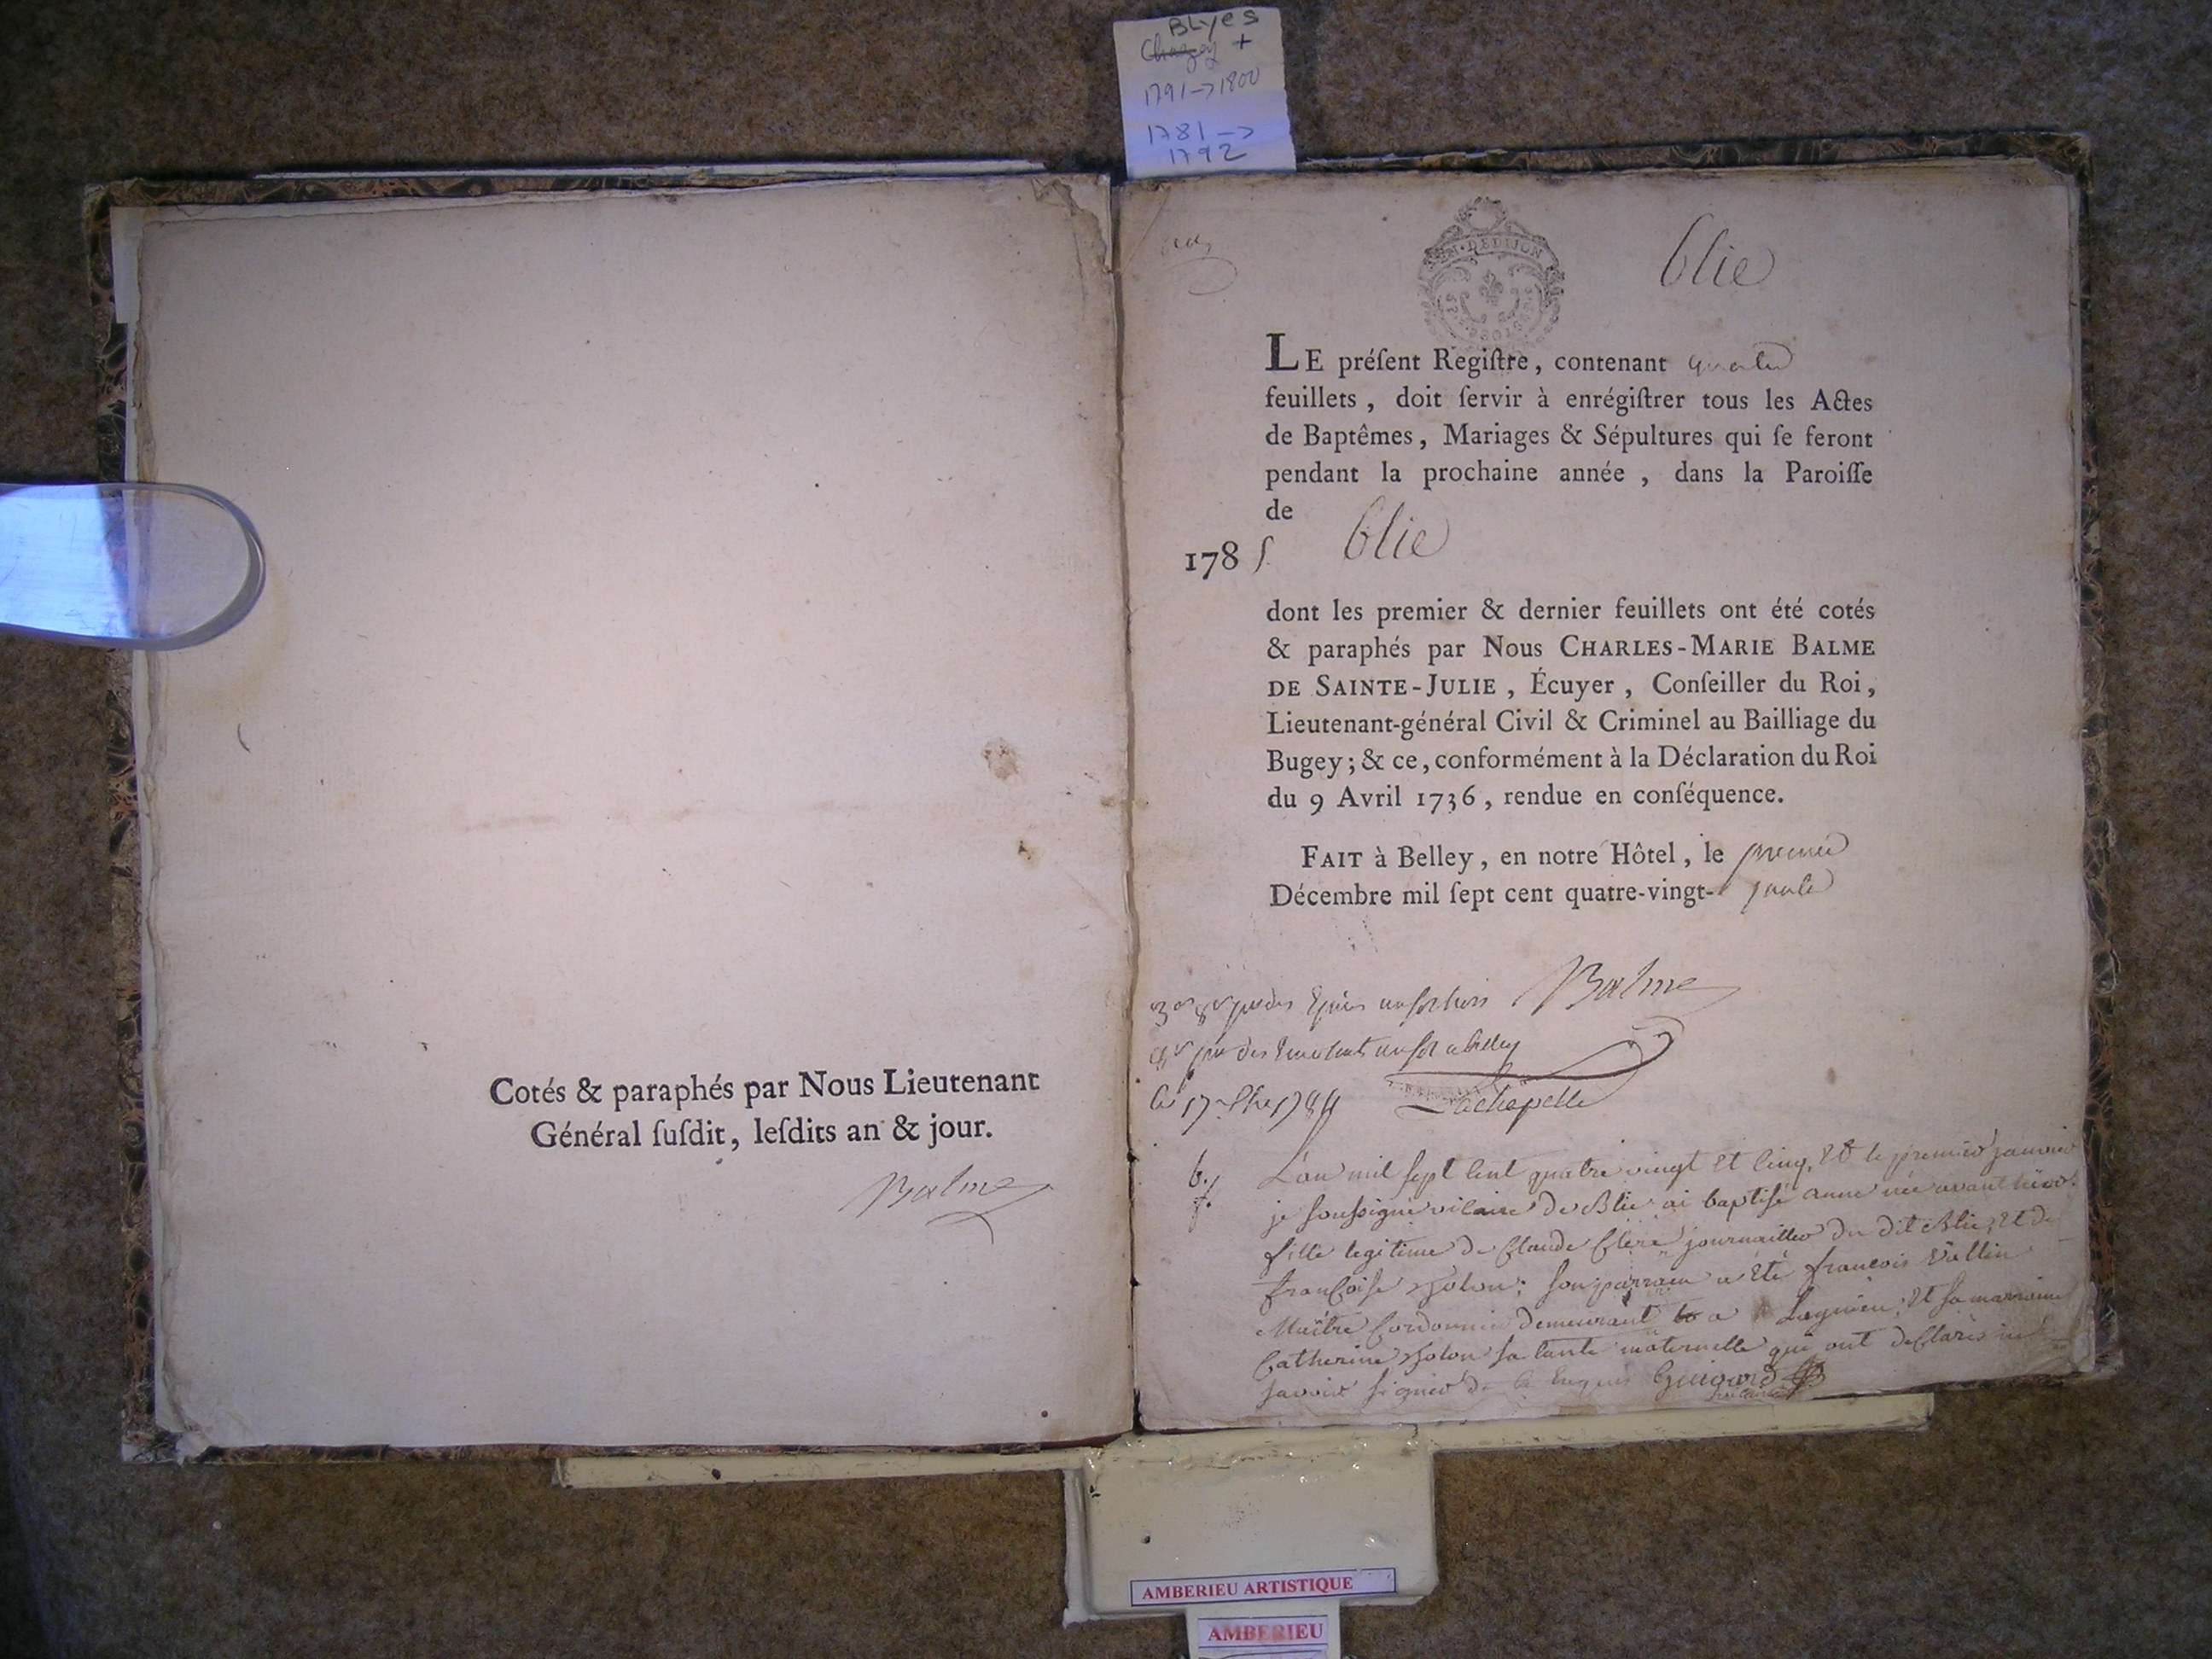 BLyes
Chazey +
1791->1800
1781->
1792
Cotés & paraphés par Nous Lieutenant
Général ſuſdit, leſdits an & jour.
Balme
GEN. DE DIJON
blie
LE préſent Regiſtre, contenant quatre
feuillets, doit ſervir à enrégiſtrer tous les Actes
de Baptêmes, Mariages & Sépultures qui ſe feront
pendant la prochaine année, dans la Paroiſſe
de
blie
1785
dont les premier & dernier feuillets ont été cotés
& paraphés par Nous CHARLES-MARIE BALME
DE SAINTE-JULIE, Écuyer, Conſeiller du Roi,
Lieutenant-général Civil & Criminel au Bailliage du
Bugey; & ce, conformément à la Déclaration du Roi
du 9 Avril 1736, rendue en conſéquence.
FAIT à Belley, en notre Hôtel, le premier
Décembre mil ſept cent quatre-vingt-quatre
Balme
Lachapelle
b.
f.
L'an mil sept cent quatre vingt et cinq, et le premier janvier
je soussigné vicaire de Blie ai baptisé anne née avant hier
fille legitime de Claude journailler du dit Blie, et de
françoise son parrain a été francois Vallin
Maître Cordonnier demeurant a Lagnieu, et sa marraine
Catherine sa tante maternelle qui ont
savoir signer de ce enquis Guigard
vicaire
AMBERIEU ARTISTIQUE
AMBERIEU